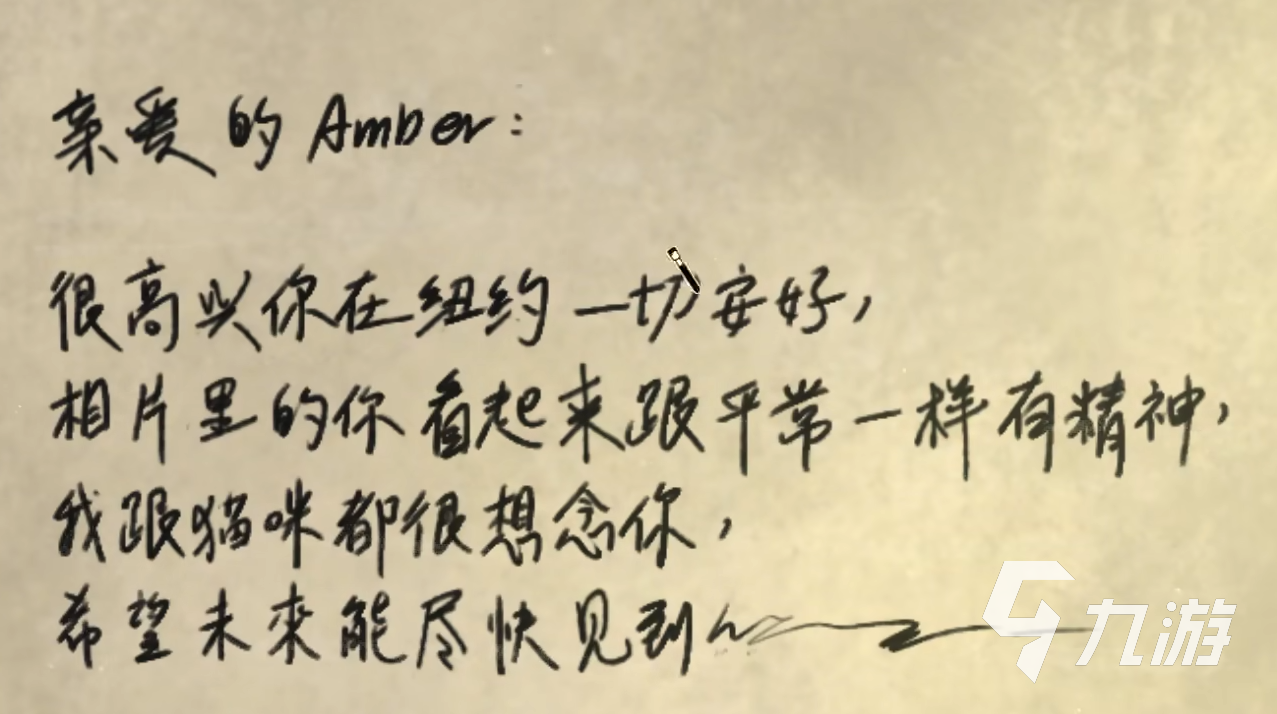 亲爱的Amber：
很高兴你在纽约一切安好，
相片里的你看起来跟平常一样有精神，
我跟猫咪都很想念你，
希望未来能尽快见到
九游